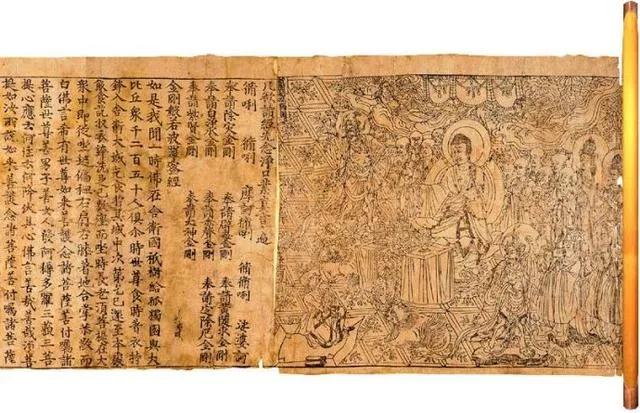 凡欲讀經先念淨口業真言一遍
脩唎 脩唎 摩訶脩唎 脩脩唎 娑婆訶
奉請除災金剛 奉請辟毒金剛 奉請黃隨求金剛
奉請白淨水金剛 奉請赤聲金剛 奉請定除厄金剛
奉請紫賢金剛 奉請大神金剛
金剛般若波羅蜜經
如是我聞一時佛在舍衛國祇樹給孤獨園與大
比丘眾千二百五十人俱尒時世尊食時著衣持
鉢入舍衛大城乞食於其城中次第乞已還至本處
飯食訖收衣鉢洗足已敷座而坐時長老須菩提在大
眾中即從坐起偏袒右肩右膝著地合掌恭敬而
白佛言希有世尊如來善護念諸菩薩善付囑諸
菩薩世尊善男子善女人發阿耨多羅三藐三菩
提心應云何住云何降伏其心佛言善哉善哉須菩
提如汝所說如來善護念諸菩薩善付囑諸菩薩